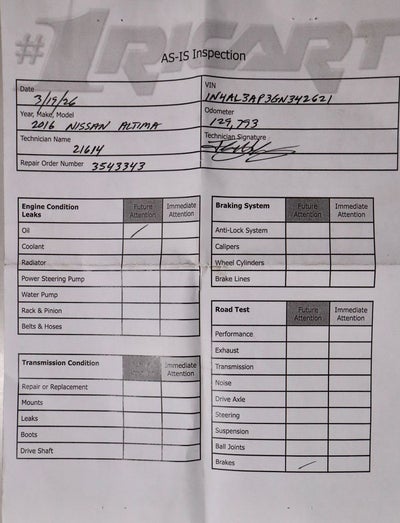 #1 RICART
AS-IS Inspection
Date
3/19/26
VIN
1N4AL3AP3GN342621
Year, Make, Model
2016 NISSAN ALTIMA
Odometer
129,793
Technician Name
21614
Technician Signature
Repair Order Number 3543343
Engine Condition
Leaks
Future
Attention
Immediate
Attention
Oil
Coolant
Radiator
Power Steering Pump
Water Pump
Rack & Pinion
Belts & Hoses
Transmission Condition
Immediate
Attention
Repair or Replacement
Mounts
Leaks
Boots
Drive Shaft
Braking System
Future
Attention
Immediate
Attention
Anti-Lock System
Calipers
Wheel Cylinders
Brake Lines
Road Test
Future
Attention
Immediate
Attention
Performance
Exhaust
Transmission
Noise
Drive Axle
Steering
Suspension
Ball Joints
Brakes